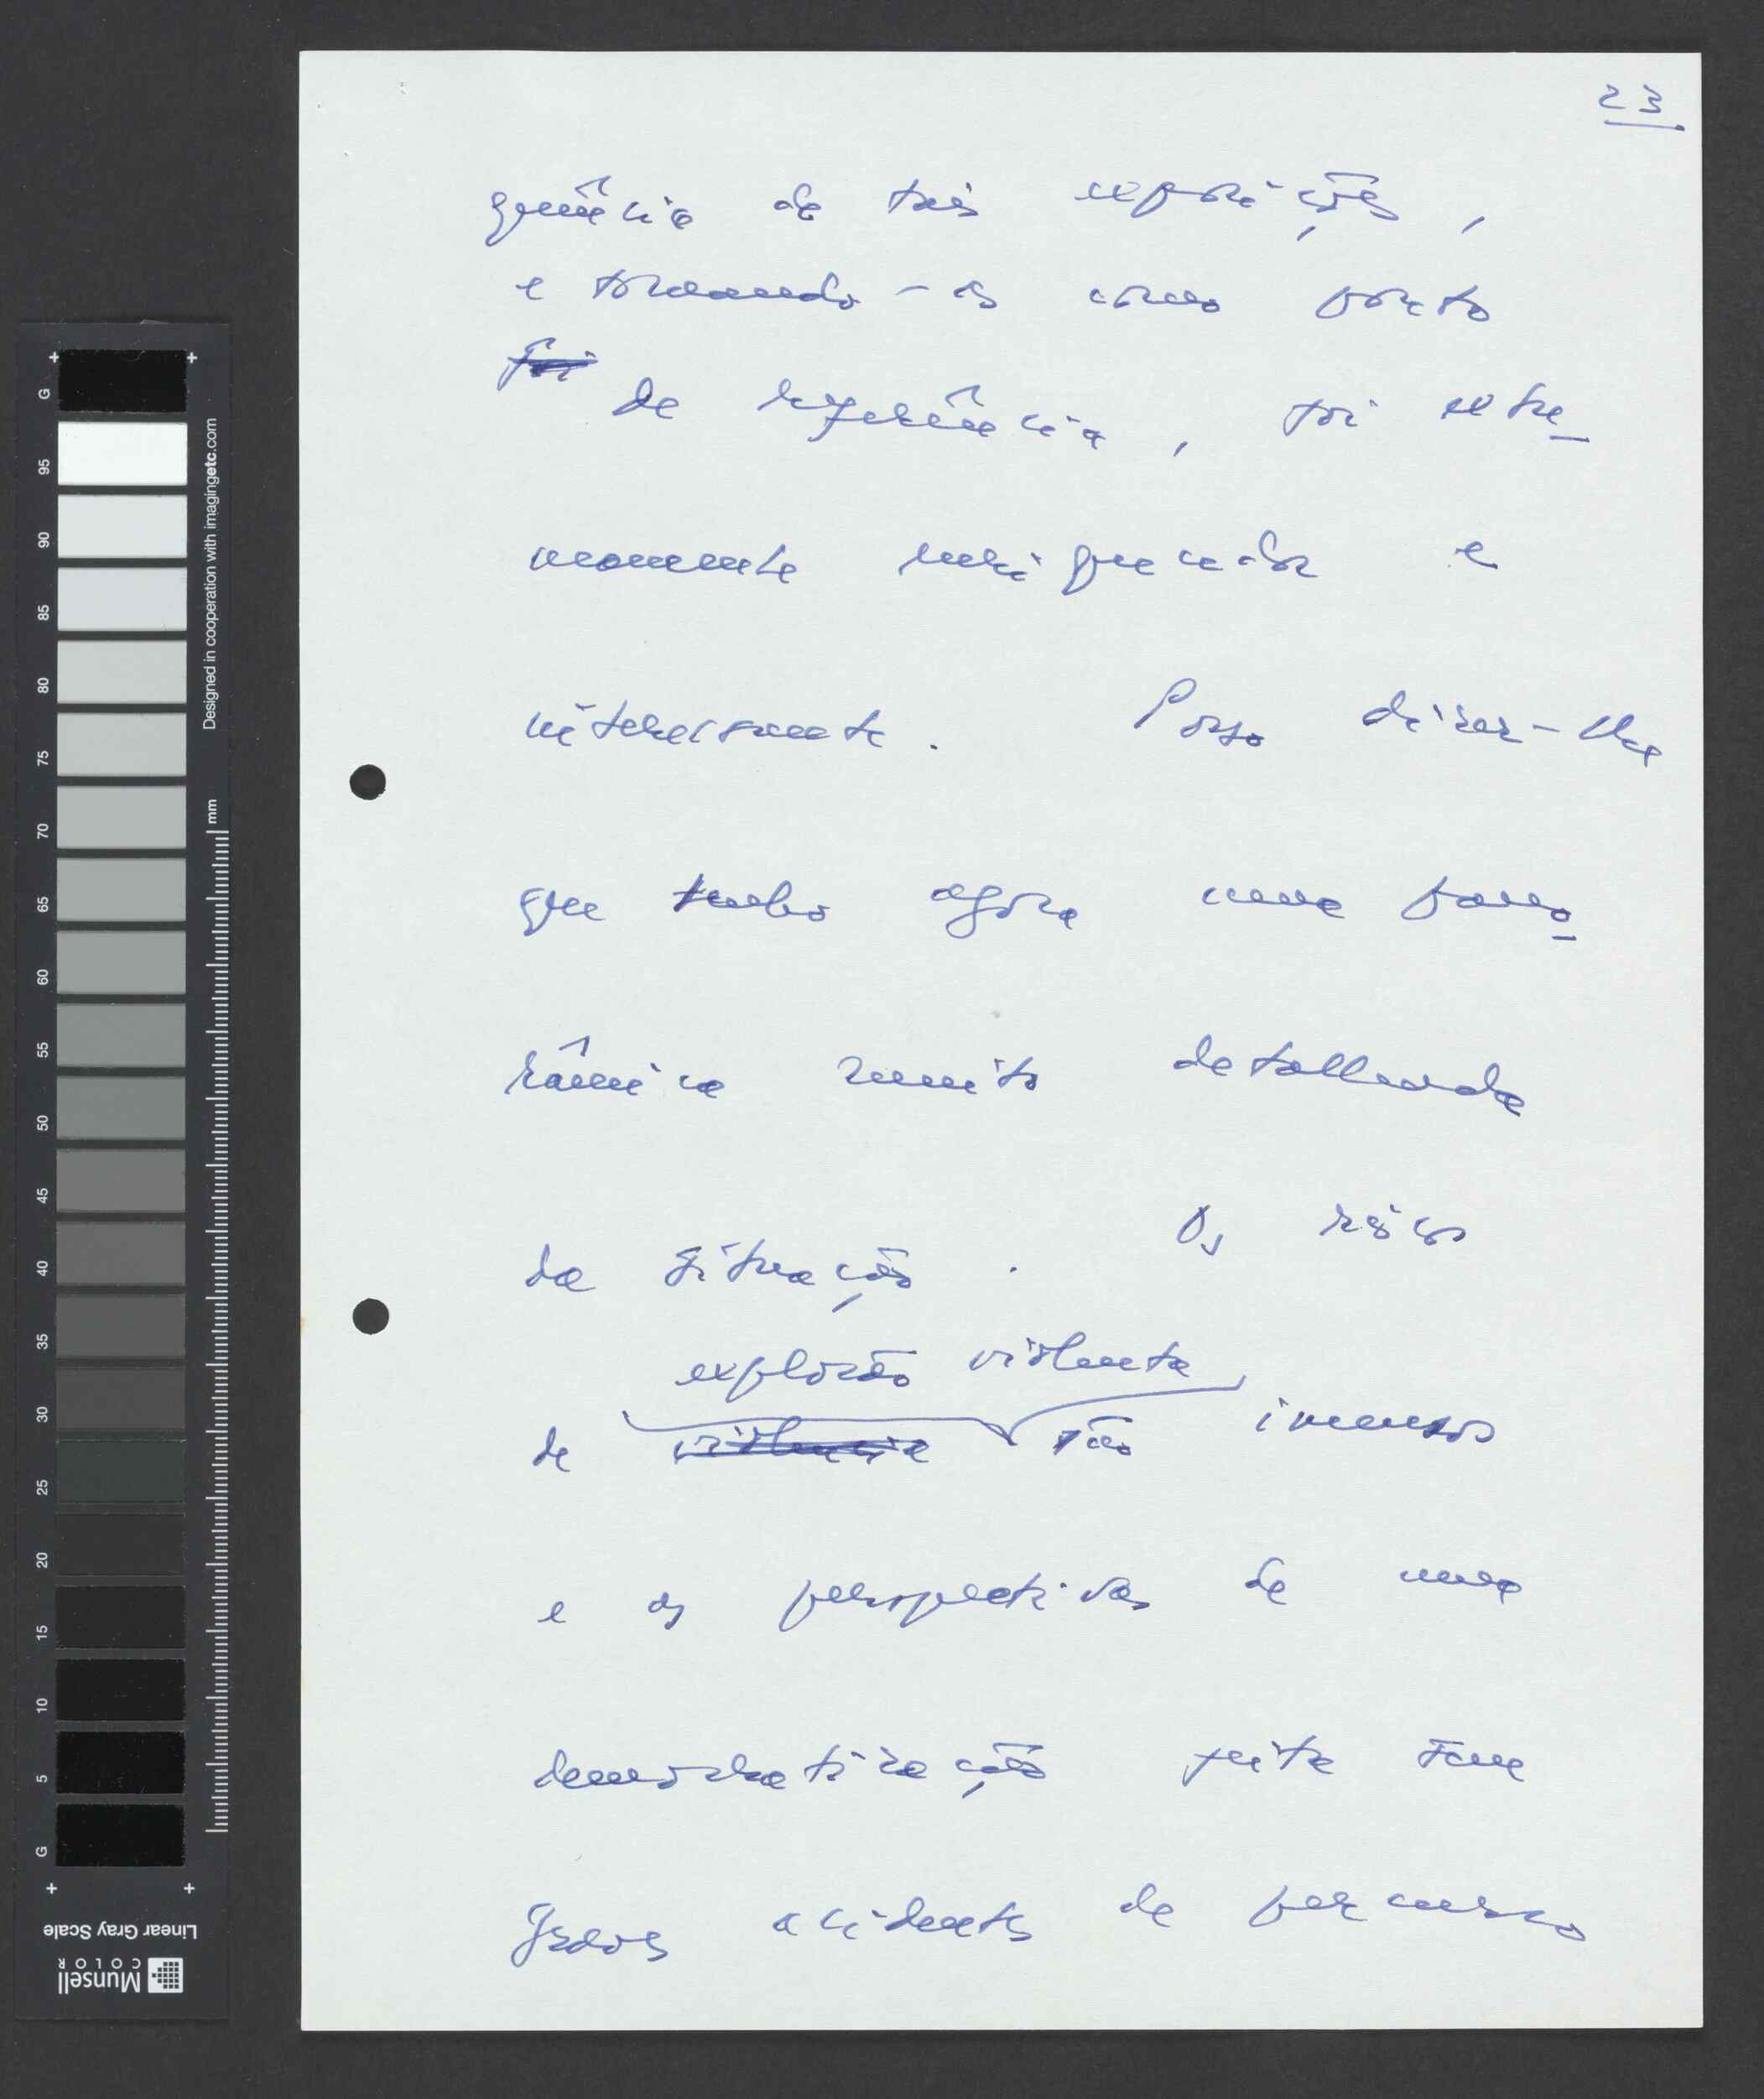 23
qüência de tais exposições,
e tomando-as como ponto
foi
de referência, foi extre-
mamente enriquecedor e
interessante. Posso dizer-lhe
que tenho agora uma pano-
râmica muito detalhada
da situação. Os riscos
explosão violenta
de violência são imensos
e as perspectivas de uma
democratização feita sem
graves acidentes de percurso
Designed in cooperation with imagingetc.com
mm
G 95 90 85 80 75 70 65 60 55 50 45 40 35 30 25 20 15 10 5 G
Linear Gray Scale
Munsell
COLOR